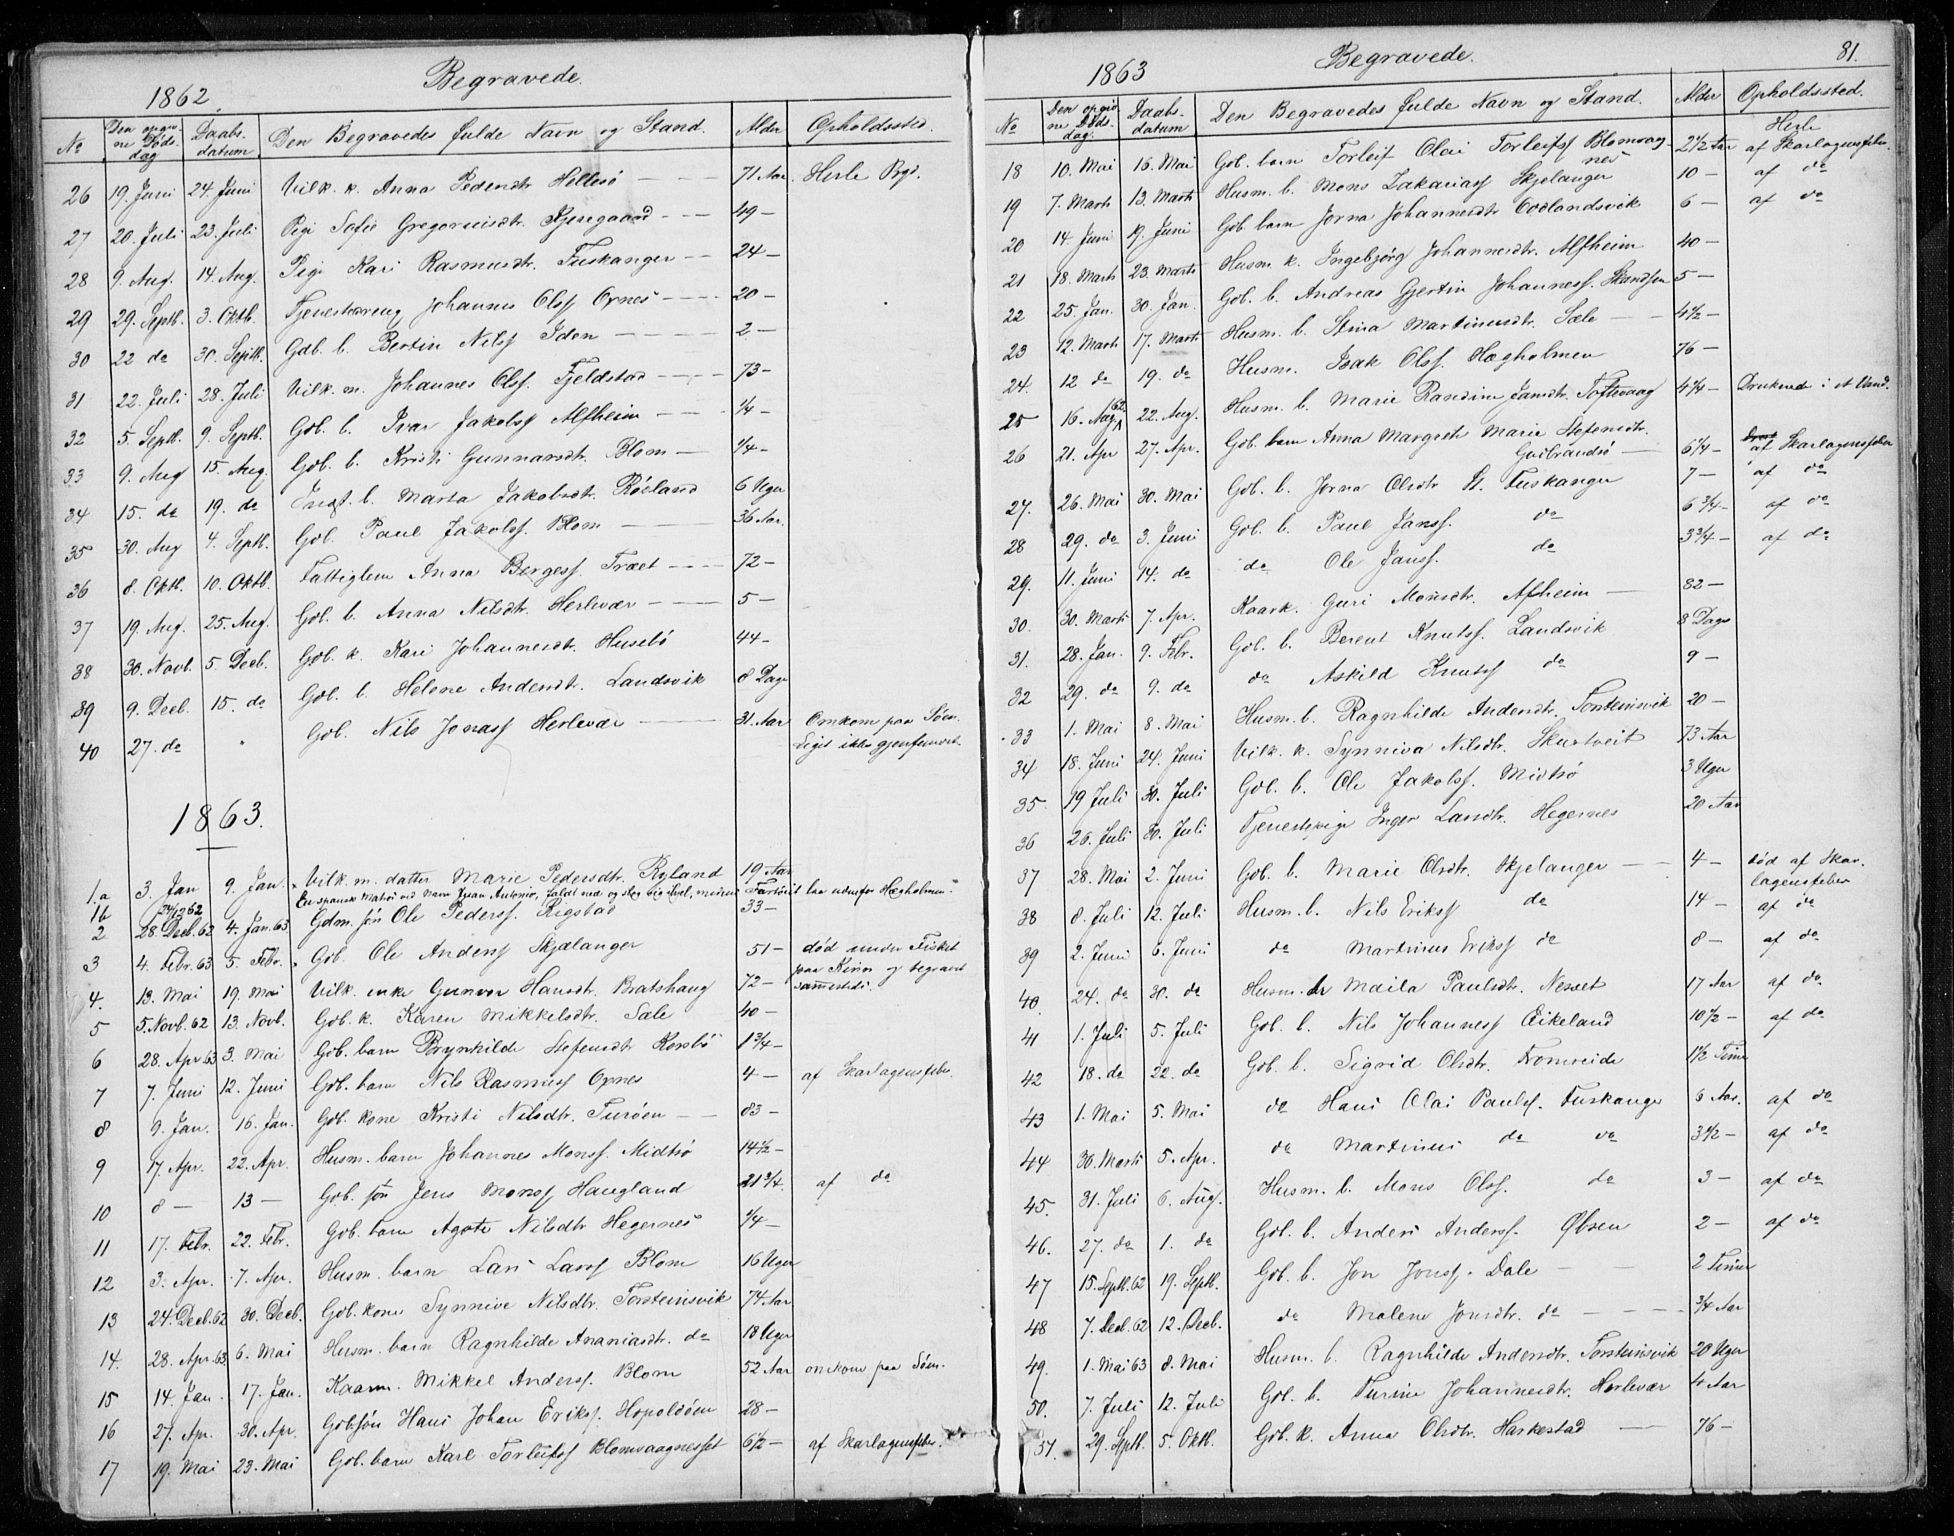 Begravede.
1862.
No | Den opgivne Dødsdag | Daabsdatum | Den Begravedes fulde Navn og Stand. | Alder | Opholdssted.
26 19. Juni 24. Juni Vilk. k. Anna Pedersdtr. Hellesö 71 Aar. Herle Bgd.
27 20. Juli 23. Juli Pige Sofie Gregoriusdtr. 49 -
28 9. Aug. 14 Aug. Pige Kari Rasmusdtr. Fuskanger 24 -
29 29. Septb. 3. Oktb. Tjenestdreng Johannes Olsf Opnes 20 -
30 22 do 30. Septb. Gdb. b. Bertin Nilsf Iden 2 -
31 22. Juli 28. Juli Vilk. m. Johannes Olsf. Fjeldstad 73 -
32 5. Septb. 9. Septb. Gdb. b. Ivar Jakobsf Alfheim 1/4 -
33 9. Aug 15. Aug. Gdb. b. Kristi Gunnarsdtr. Blom 1/4 -
34 15. do 19. do Indst. b. Marta Jakobsdtr. Röeland 6 Uger
35 30. Aug 4. Septb. Gdb. Paul Jakobsf. Blom 36 Aar.
36 8. Oktb. 10. Oktb. Fattiglem Anna Börgesf. Træet 72 -
37 19. Aug. 25. Aug. Gdb. b. Anna Nilsdtr. Herlevær 5 -
38 30. Novb. 5. Decb. Gdb. k. Kari Johannesdtr. Husebö 44 -
39 9. Decb. 15. do Gdb. b. Helene Andersdtr. Landsvik 8 Dage
40 27. do " Gdb. Nils Jonasf Herlevær 31. Aar Omkom paa Søen.
Liget ikke gjenfundet.
1863.
1.a 3. Jan 9. Jan. Vilk. m. datter Marie Pedersdtr. Ryland 19 Aar
1b 24/12 62 En spansk Matros ved Navn Juan Antonio, faldt ned og slog sig ihjel, medens Fartöiet laa udenfor Hægholmen.
2 28. Decb. 62 4. Jan. 63 Gdm. sön Ole Pedersf. Rigstad 33 -
3 4. Febr. 63 5. Febr. Gdb. Ole Andersf Skjælanger 51 - död under Fisket
paa Kinn og begravet
sammesteds.
4. 13. Mai 19. Mai Vilk. enke Gunvor Hansdtr. Bratshaug 72 -
5 5. Novb. 62 13. Novb. Gdb. k. Karen Mikkelsdtr. Sæle 40 -
6 28. Apr 63 3. Mai Gdb. barn Brynhilde Stefensdtr Korsbö 1 3/4 -
7 7. Juni 12. Juni Gdb. barn Nils Rasmusf Opnes 4 - af Skarlagensfeber.
8 9. Jan. 16. Jan. Gdb. kone Kristi Nilsdtr. Turöen 83 -
9 17. Apr. 22. Apr. Husm. barn Johannes Monsf. Midtö 14 1/2 -
10 8 - 13 - Gdb. sön Jens Monsf Haugland 21 3/4. af do
11 17. Febr. 22. Febr. Gdb. barn Agate Nilsdtr Hegernes 1/4 -
12 3. Apr. 7. Apr. Husm. barn Lars Larsf Blom 16 Uger
13 24. Decb. 62 30. Decb. Gdb. kone Synnive Nilsdtr. Torsteinsvik 74 Aar
14. 28. Apr. 63 6. Mai Husm. barn Ragnhilde Ananiasdtr. do 18 Uger
15 14. Jan. 17. Jan. Kaarm. Mikkel Andersf. Blom 52 Aar omkom paa Søen.
16 27. Apr. 30. Apr. Gdb. sön Hans Johan Eriksf. Hopoldöen 28 -
17 19. Mai 23. Mai Gdb. barn Karl Torleifsf Blomvaagnesset 6 1/2 - af Skarlagensfeber.
Begravede.
81.
1863
No | Den opgivne Dødsdag. | Daabsdatum | Den Begravedes fulde Navn og Stand. | Alder | Opholdssted.
Herle
18 10. Mai 16. Mai Gdb. barn Torleif Olai Torleifsf Blomvaagnes 2 1/2 Aar af Skarlagensfeber.
19 7. Marts 13. Marts Husm. b. Mons Zakariasf Skjelanger 10 - af do
20 14. Juni 19. Juni Gdb. barn Jorna Johannesdtr Oddlandsvik 6 - af do
21 18. Marts 23. Marts Husm. k. Ingebjörg Johannesdtr. Alfheim 40 -
22 25. Jan. 30. Jan. Gdb. b. Andreas Gjertin Johannesf. 5 -
23 12. Marts 17. Marts Husm. b. Stina Martinusdtr. Sæle 4 1/2 -
24. 12 do 19. do Husm. Isak Olsf. Hægholmen 76 -
25 16. Aug 62. 22. Aug. Husm. b. Marie Randine Jansdtr. Toftevaag 4 1/4 - Druknede i et Vand.
26 21. Apr 27. Apr. Gdb. barn Anna Margrete Marie Stefensdtr.
Guibrandsö 6 1/4 - af Skarlagensfeber
27. 26. Mai 30. Mai Gdb. b. Jorna Olsdtr N. Fuskanger 7 - af do
28 29. do 3. Juni Gdb. b. Paul Jansf. do 6 3/4 - af do
29. 11. Juni 14. do do Ole Jansf. do 3 3/4 - af do
30. 30. Marts 7. Apr. Kaark. Guri Monsdtr. Alfheim 82 -
31. 28. Jan. 9. Febr. Gdb. b. Berent Knutsf. Landsvik 8 Dage
32 29. do 9. do do Askild Knutsf do 9 -
33 1. Mai 8. Mai Husm. b. Ragnhilde Andersdtr. Torsteinsvik 20 -
34 18. Juni 24. Juni Vilk. k. Synniva Nilsdtr. Skurtveit 73 Aar
35. 19 Juli 30. Juli Gdb. b. Ole Jakobsf. Midtö 3 Uger
36 26. Juli 30. Juli Tjenestpige Inger Larsdtr. Hegernes 20 Aar
37 28. Mai 2. Juni Gdb. b. Marie Olsdtr. Skjelanger 4 - död af Skarlagensfeber
38 8. Juli 12. Juli Husm. b. Nils Eriksf do 14 - af do
39 2. Juni 6. Juni do Martinus Eriksf do 8 - af do
40. 24. do 30. do Husm. Maila Paulsdtr. Nesset 17 Aar af do
41 1. Juli 5. Juli Gdb. b. Nils Johannesf Eikeland 10 1/2 - af do
42 18. do 22. do Gdb. b. Sigrid Olsdtr. Fromreide 1 1/2 Time
43 1. Mai 5. Mai do Hans Olai Paulsf. Fuskanger 6 Aar. af do
44 30. Marts 5. Apr. do Martinus do do 3 1/2 - af do
45. 31. Juli 6. Aug. Husm. b. Mons Olsf. do 3 - af do
46. 27. do 1. do Gdb. b. Anders Andersf. Øbsen 2 - af do
47 15. Septb. 62 19. Septb. Gdb. b. Jon Jonsf. Dale 2 Timer
48 7. Decb. 62 12. Decb. do Malene Jonsdtr. do 3/4 Aar
49. 1. Mai 63 8. Mai Husm. b. Ragnhilde Andersdtr. Torsteinsvik 20 Uger
50. 7. Juli 12. Juli Gdb. b. Turine Johannesdtr. Herlevær 4 Aar
51. 29. Septb. 5. Oktb. Gdb. k. Anna Olsdtr. Harkestad 76 -